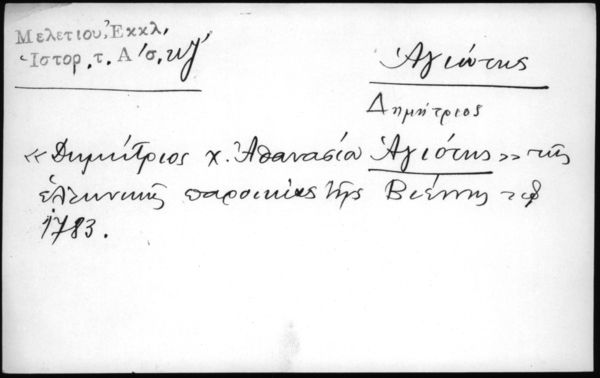 Μελετίου, Ἐκκλ.
Ἱστορ. τ. Α΄ σ. κγ΄
Ἁγιώτης
Δημήτριος
«Δημήτριος χ. Ἀθανασίου Ἁγιότης» τῆς
ἑλληνικῆς παροικίας τῆς Βιέννης τῷ
1783.